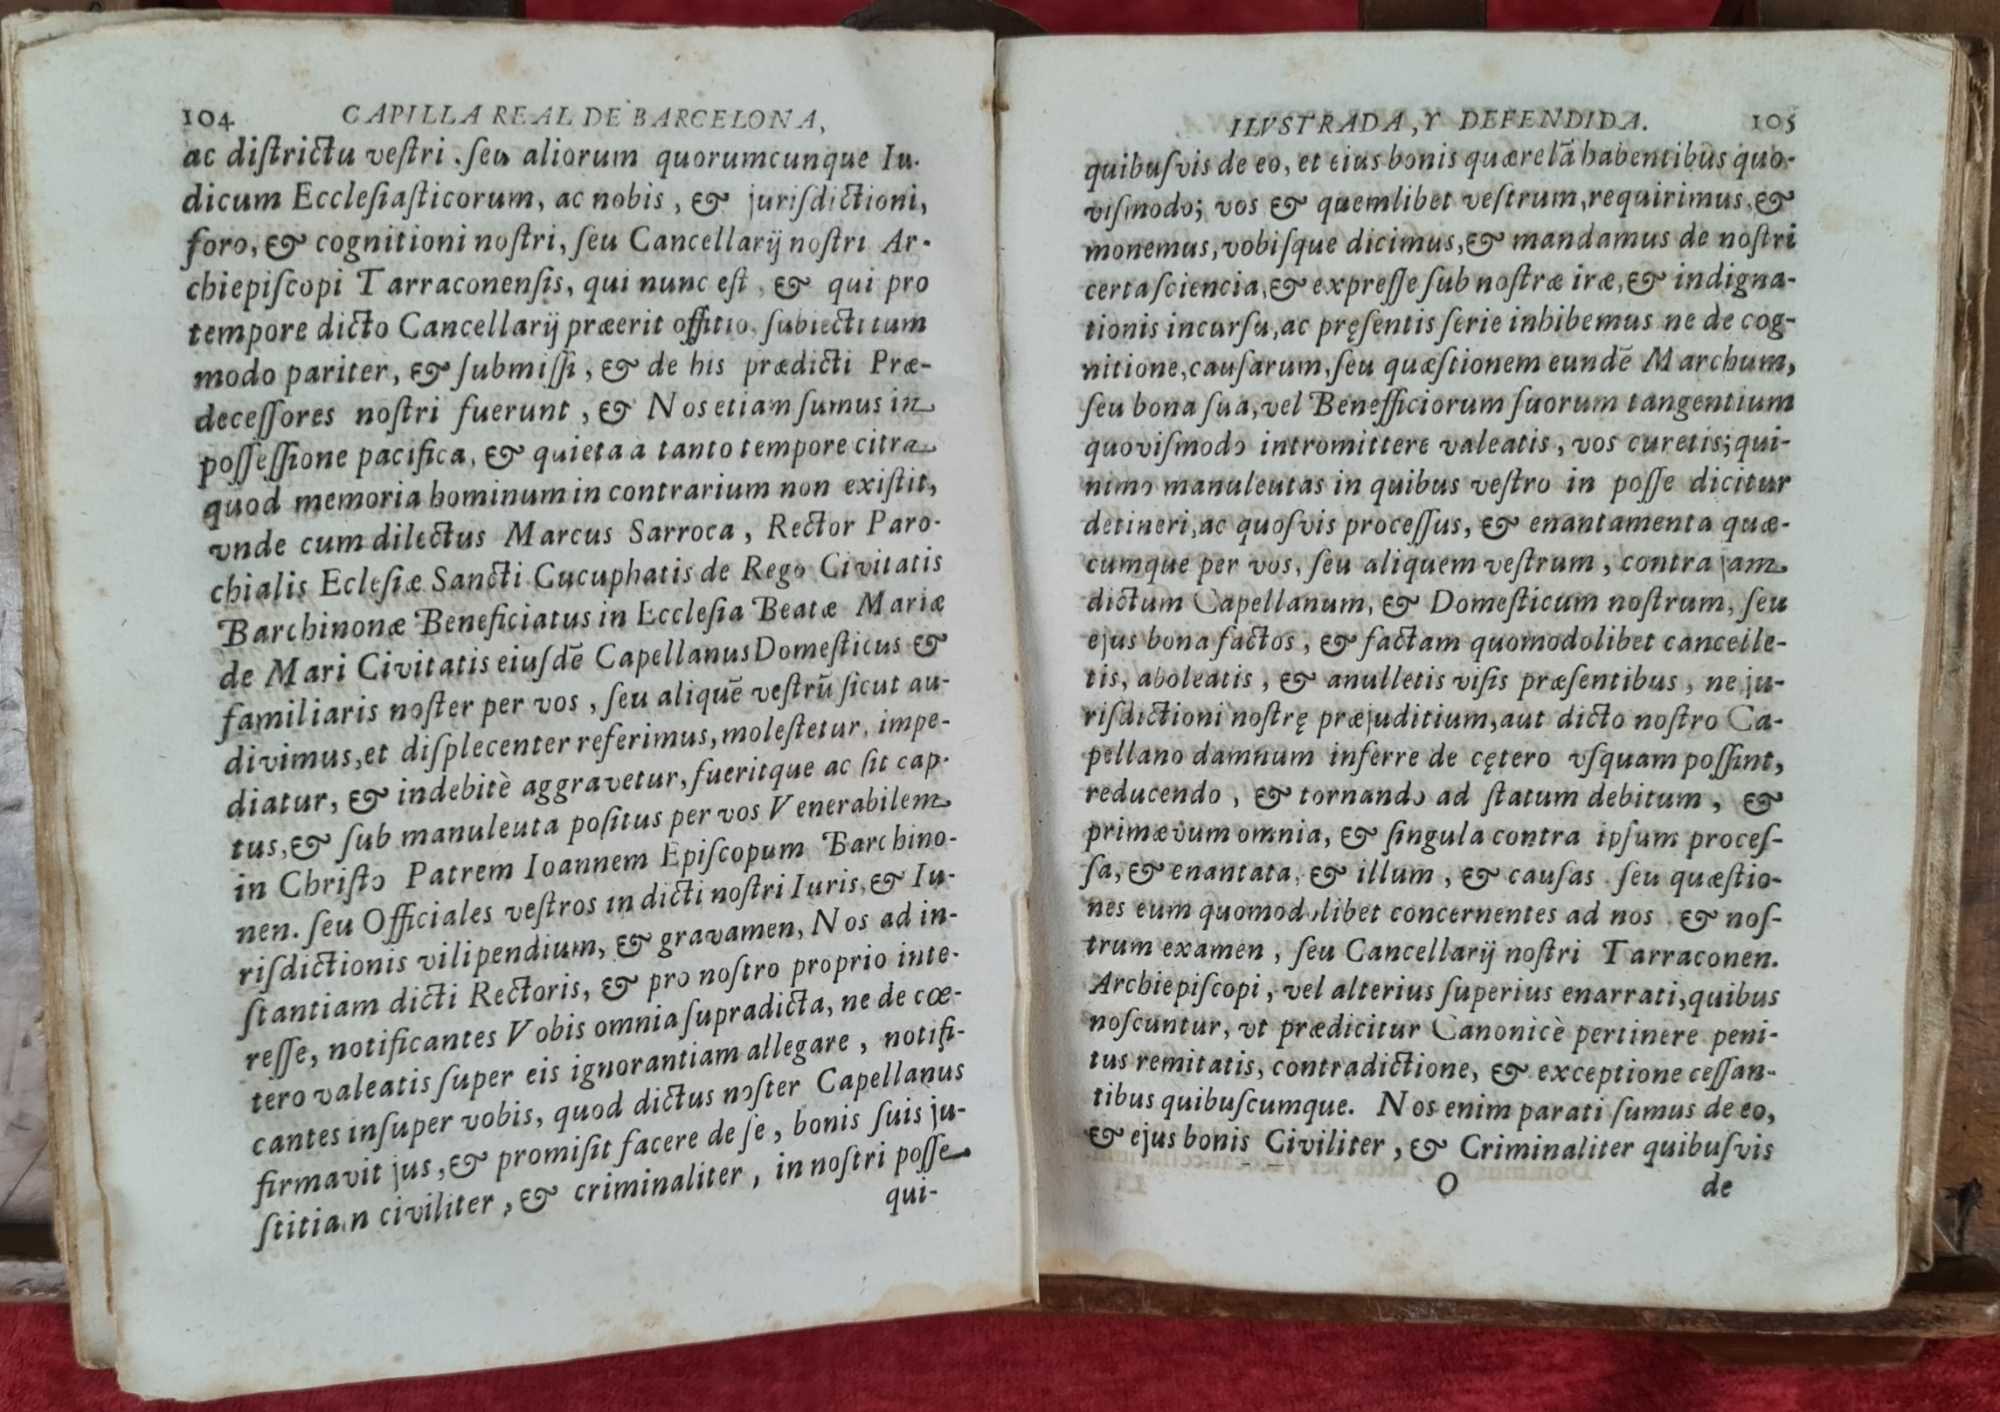 104 CAPILLA REAL DE BARCELONA,
ac diſtrictu veſtri . ſeu aliorum quorumcunque Iu-
dicum Eccleſiaſticorum, ac nobis, & juriſdictioni,
foro, & cognitioni noſtri, ſeu Cancellarij noſtri Ar-
chiepiſcopi Tarraconenſis, qui nunc eſt, & qui pro
tempore dicto Cancellarij præerit offitio, ſubiecti tum
modo pariter, & ſubmiſſi, & de his prædicti Præ-
deceſſores noſtri fuerunt, & Nos etiam ſumus in
poſſeſſione pacifica, & quieta a tanto tempore citra
quod memoria hominum in contrarium non exiſtit,
vnde cum dilectus Marcus Sarroca, Rector Paro-
chialis Ecleſiæ Sancti Cucuphatis de Rego Civitatis
Barchinonæ Beneficiatus in Eccleſia Beatæ Mariæ
de Mari Civitatis eiuſdē Capellanus Domeſticus &
familiaris noſter per vos, ſeu aliquē veſtrū ſicut au-
divimus, et diſplecenter referimus, moleſtetur, impe-
diatur, & indebitè aggravetur, fueritque ac ſit cap-
tus, & ſub manuleuta poſitus per vos Venerabilem
in Chriſto Patrem Ioannem Epiſcopum Barchino-
nen. ſeu Officiales veſtros in dicti noſtri Iuris, & Iu-
riſdictionis vilipendium, & gravamen, Nos ad in-
ſtantiam dicti Rectoris, & pro noſtro proprio inte-
reſſe, notificantes Vobis omnia ſupradicta, ne de cœ-
tero valeatis ſuper eis ignorantiam allegare, notifi-
cantes inſuper vobis, quod dictus noſter Capellanus
firmavit jus, & promiſit facere de ſe, bonis ſuis ju-
ſtitiam civiliter, & criminaliter, in noſtri poſſe
qui-
ILVSTRADA, Y DEFENDIDA. 105
quibuſvis de eo, et eius bonis quærelā habentibus quo-
viſmodo; vos & quemlibet veſtrum, requirimus, &
monemus, vobiſque dicimus, & mandamus de noſtri
certa ſciencia, & expreſſe ſub noſtræ iræ, & indigna-
tionis incurſu, ac pręſentis ſerie inhibemus ne de cog-
nitione, cauſarum, ſeu quæſtionem eundē Marchum,
ſeu bona ſua, vel Benefficiorum ſuorum tangentium
quoviſmodo intromittere valeatis, vos curetis; qui-
nimo manuleutas in quibus veſtro in poſſe dicitur
detineri, ac quoſvis proceſſus, & enantamenta quæ-
cumque per vos, ſeu aliquem veſtrum, contra jam
dictum Capellanum, & Domeſticum noſtrum, ſeu
ejus bona factos, & factam quomodolibet cancelle-
tis, aboleatis, & anulletis viſis præſentibus, ne ju-
riſdictioni noſtrę præjuditium, aut dicto noſtro Ca-
pellano damnum inferre de cętero vſquam poſſint,
reducendo, & tornando ad ſtatum debitum, &
primævum omnia, & ſingula contra ipſum proceſ-
ſa, & enantata, & illum, & cauſas ſeu quæſtio-
nes eum quomodolibet concernentes ad nos, & noſ-
trum examen, ſeu Cancellarij noſtri Tarraconen.
Archiepiſcopi, vel alterius ſuperius enarrati, quibus
noſcuntur, vt prædicitur Canonicè pertinere peni-
tus remitatis, contradictione, & exceptione ceſſan-
tibus quibuſcumque. Nos enim parati ſumus de eo,
& ejus bonis Civiliter, & Criminaliter quibuſvis
O de